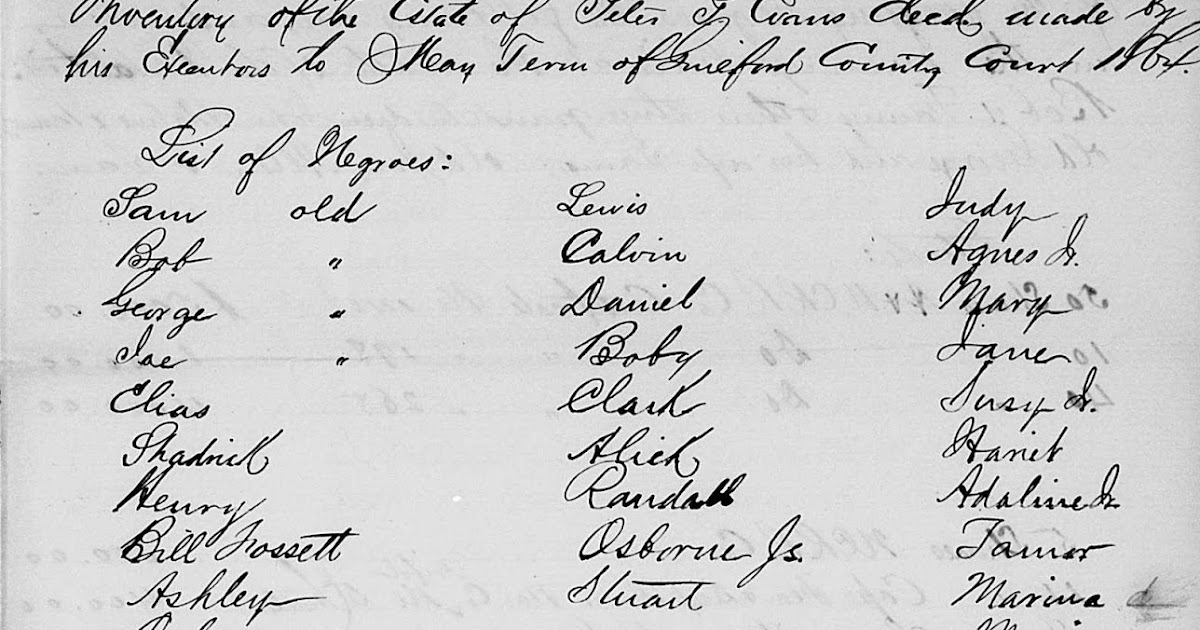 Inventory of the Estate of Peter G Evans Decd, made by
his Executors to May Term of Guilford County Court 1864.
List of Negroes:
Sam old Lewis Judy
Bob " Calvin Agnes Jr.
George " Daniel Mary
Joe " Boby Jane
Elias Clark Susy Jr.
Shadrick Alick Hariet
Henry Randall Adaline Jr.
Bill Fossett Osborne Js. Tamer
Ashley Stuart Marina